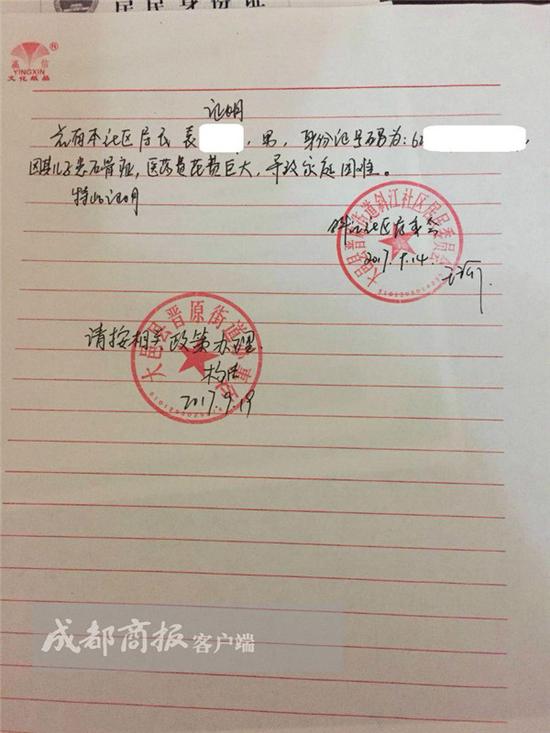 居民身份证
嬴信®
YINGXIN
文化纸品
证明
兹有本社区居民袁 ，男，身份证号码为：62 ，
因其儿子患石骨症，医药费花费巨大，导致家庭困难。
特此证明
斜江社区居委会
2017.9.14.
大邑县晋原街道斜江社区居民委员会
请按相关政策办理.
2017.9.19
大邑县晋原街道办事处
成都商报客户端